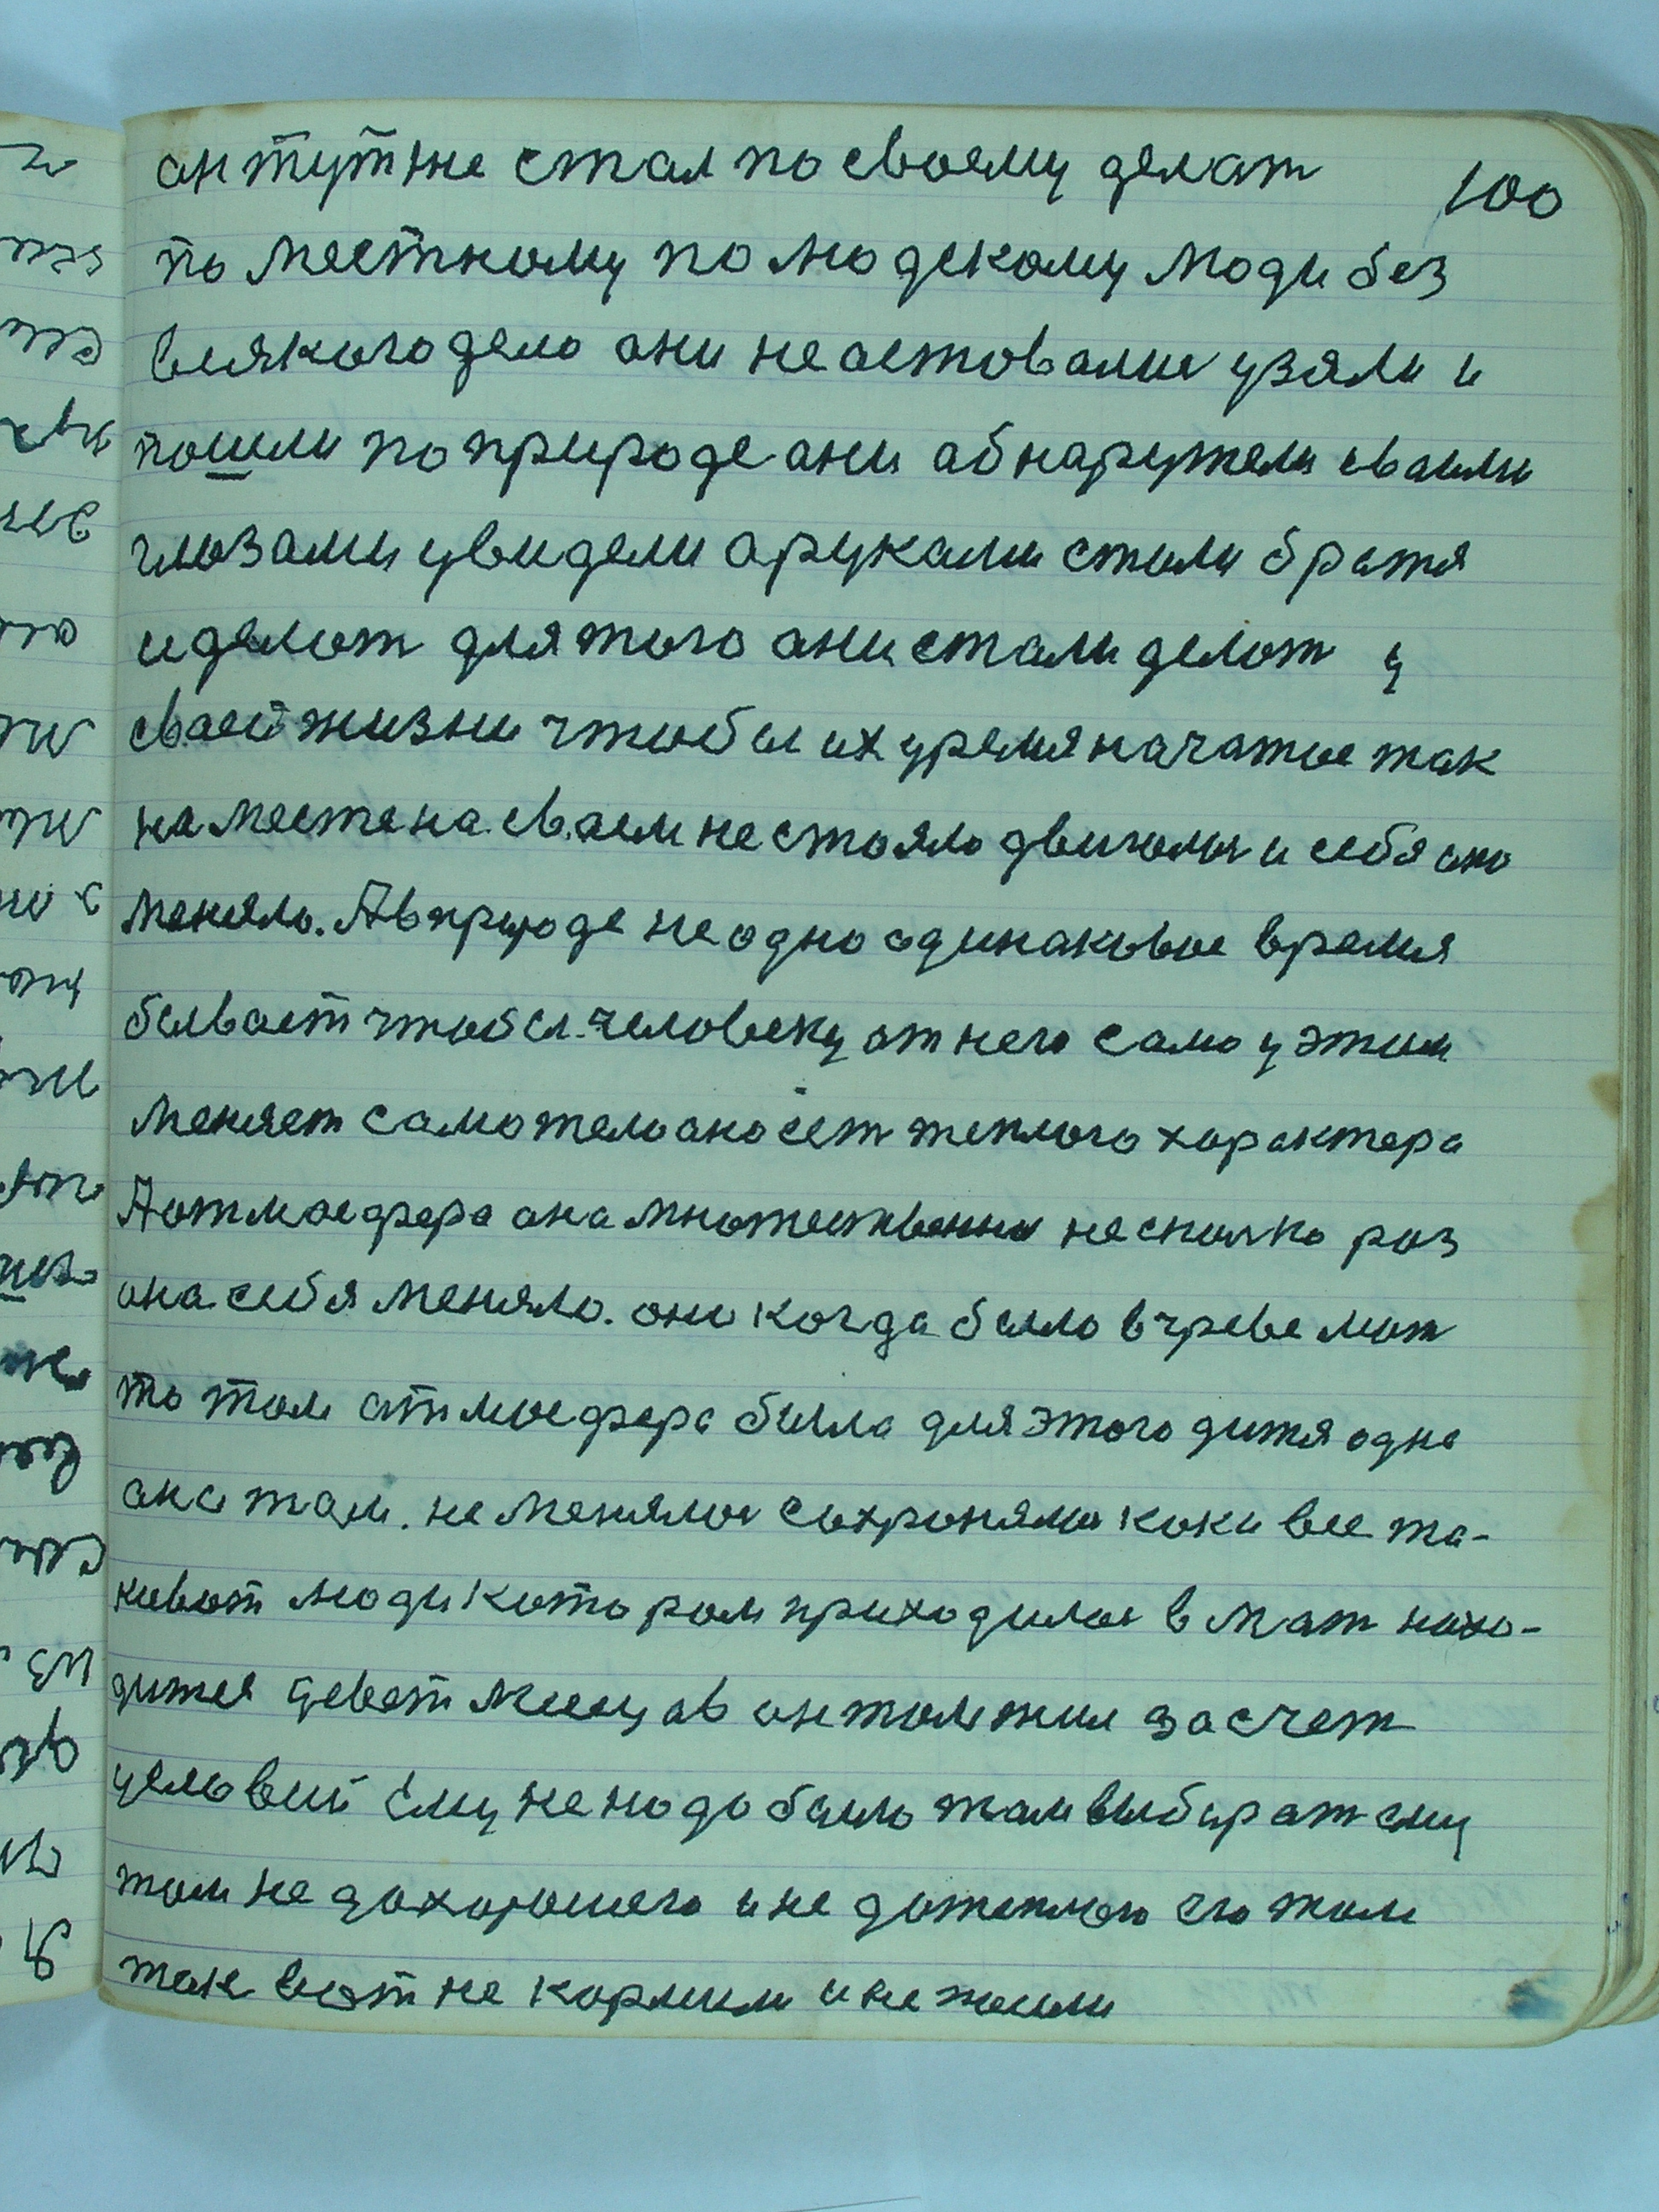 ан тут же стал по своему делат 100
по местному по людскому люди без
всякого дело ани не аставалис узяли и
пошли по природе ани абнаружели сваими
глазами увидели а руками стали братя
и делат для того ани стали делат у
сваей жизни чтобы их уремя начатое так
на месте на сваем не стояло двигалос и себя ано
меняло. А в природе не одно одинаковое время
бывает чтобы человеку от него само у этим
меняет само тело ано ест теплого характера
А атмосфера она множественно несколко раз
она себя меняло. оно когда было в чреве мат
то там атмосфера была для этого дитя одна
ана там. не менялос сохронялос как и все та-
ки вот люди котором приходилос в мат нахо-
дится девет месецав ан там жил за счет
условий ему не надо было там выбират ему
там не до хорошего и не до теплого его там
так вот не кормили и не поили